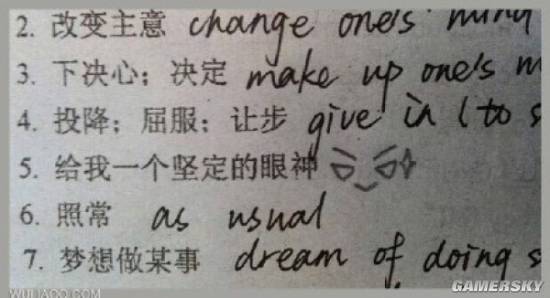 2. 改变主意 change one's mind
3. 下决心；决定 make up one's m
4. 投降；屈服；让步 give in (to s
5. 给我一个坚定的眼神
6. 照常 as usual
7. 梦想做某事 dream of doing s
WULIAOO.COM GAMERSKY